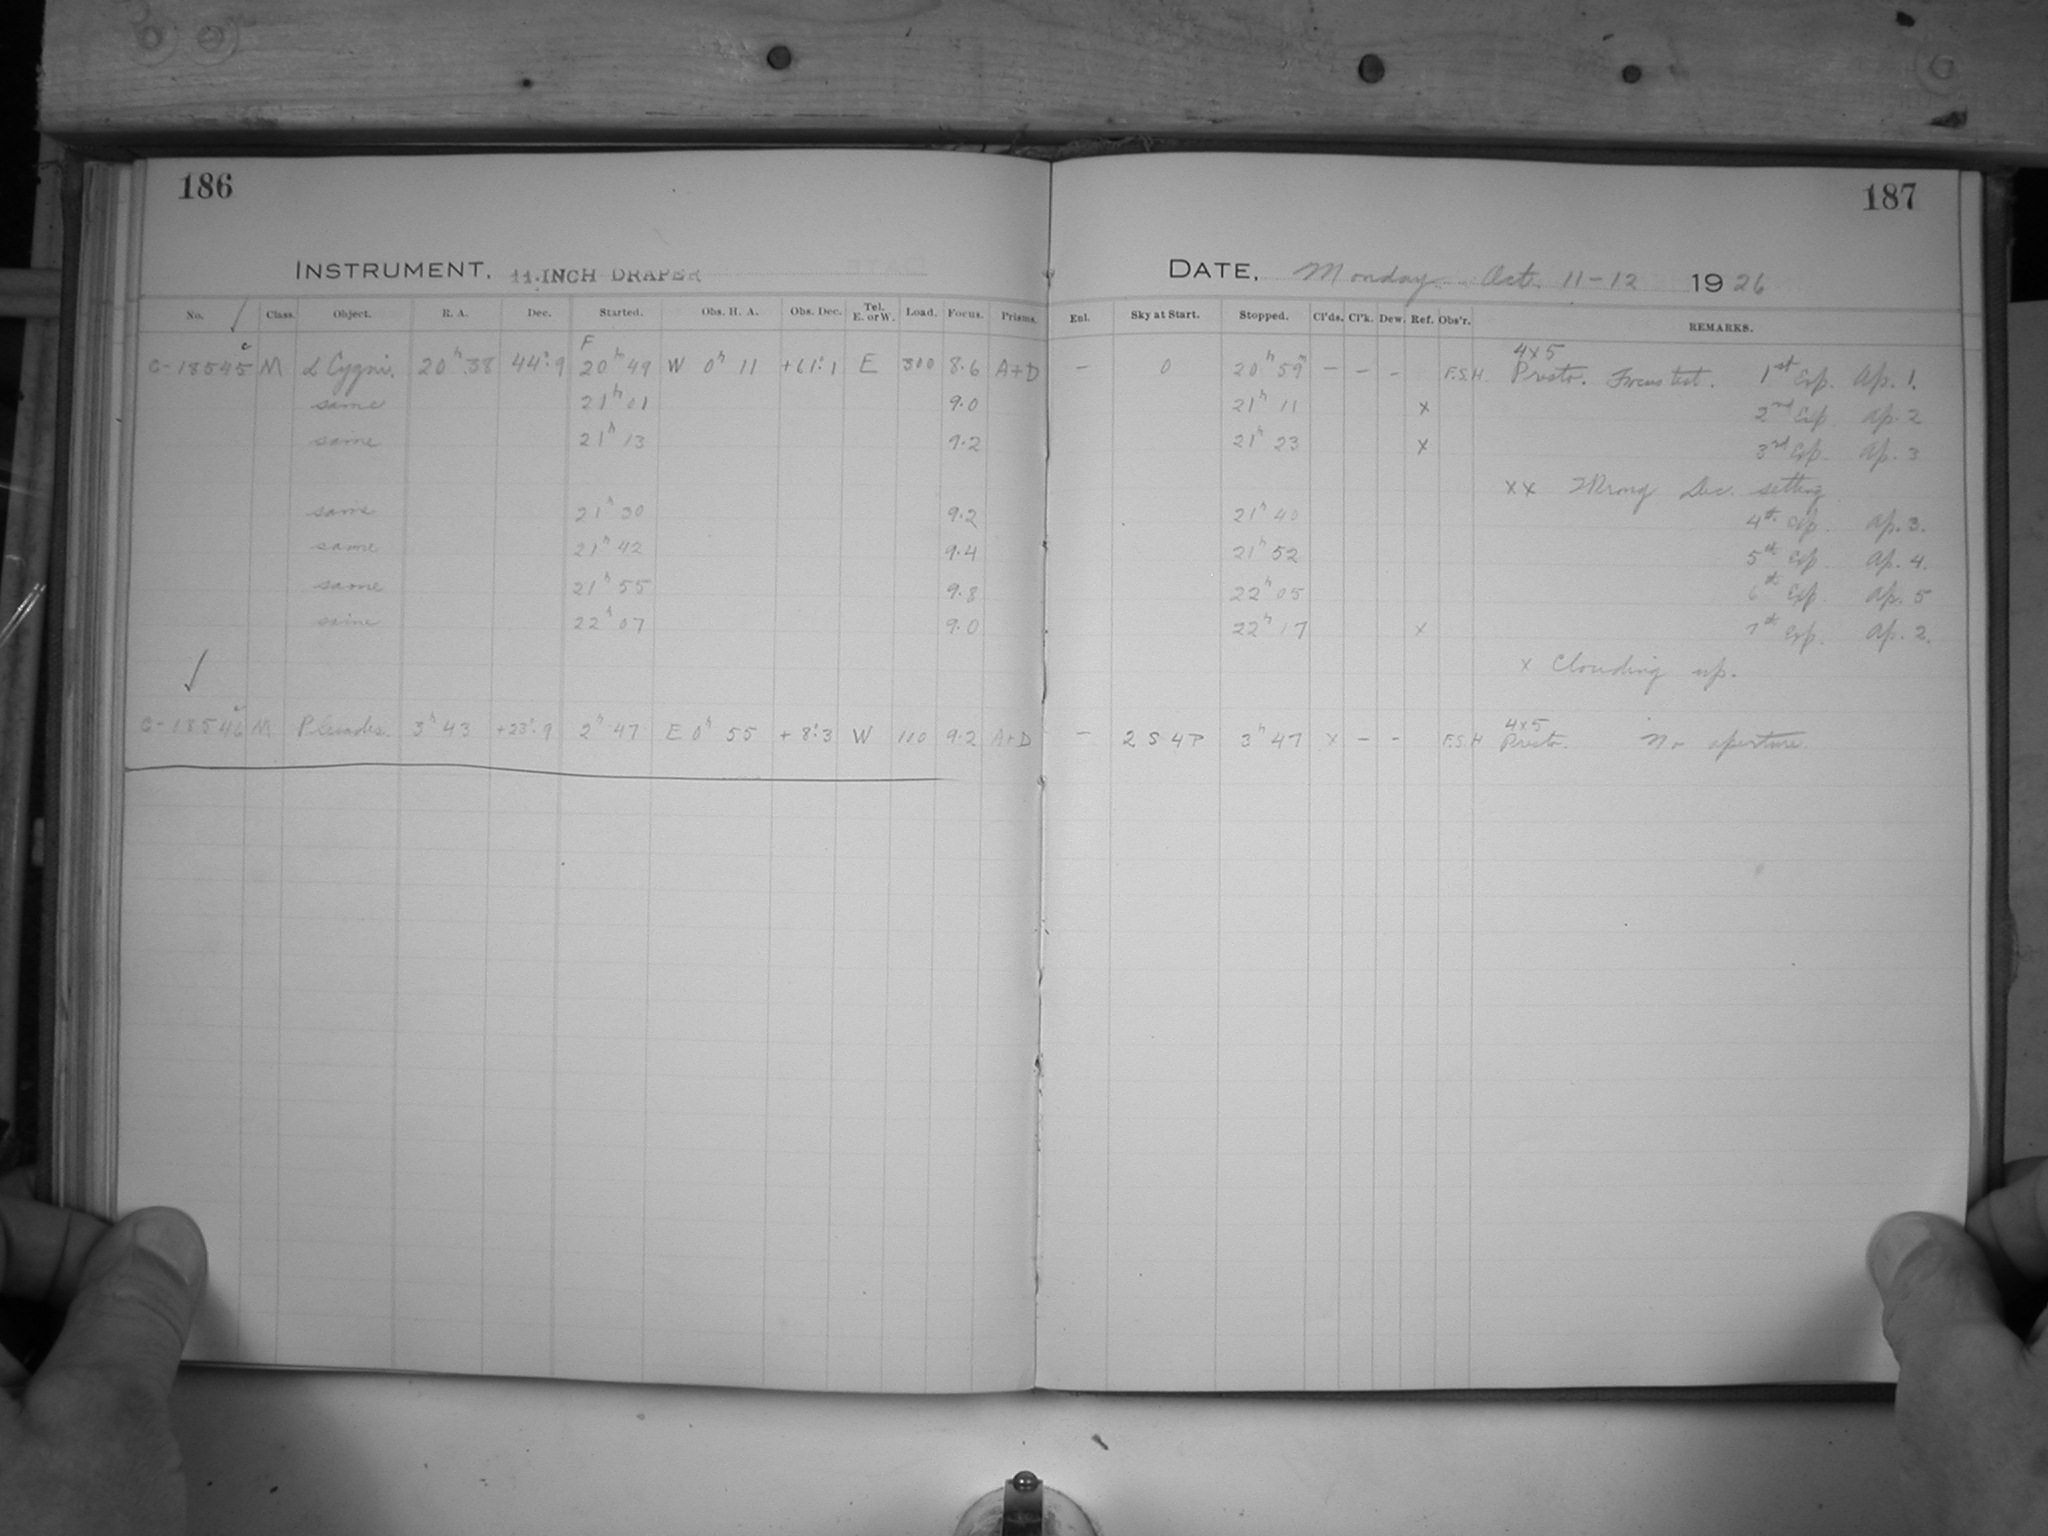 186
187
INSTRUMENT. 11-INCH DRAPER
DATE. Monday Oct. 11-12 1926
No. Class. Object. R. A. Dec. Started. Obs. H. A. Obs. Dec. Tel. E. or W. Load. Focus. Prisms. Enl. Sky at Start. Stopped. Cl'ds. Cl'k. Dew. Ref. Obs'r. REMARKS.
C-18545 c M α Cygni. 20h 38 44°.9 F 20h 49 W 0h 11 +61°.1 E 300 8.6 A+D – 0 20h 59m – – – F.S.H. 4x5 Presto. Focus test. 1st Exp. Ap. 1.
same 21h 01 9.0 21h 11 x 2nd Exp. Ap. 2
same 21h 13 9.2 21h 23 x 3rd Exp. Ap. 3
xx Wrong Dec. setting
same 21h 30 9.2 21h 40 4th Exp. Ap. 3.
same 21h 42 9.4 21h 52 5th Exp Ap. 4.
same 21h 55 9.8 22h 05 6th Exp. Ap. 5
same 22h 07 9.0 22h 17 x 7th Exp. Ap. 2.
x Clouding up.
C-18546 c M Pleiades. 3h 43 +23°.9 2h 47 E 0h 55 +8°.3 W 110 9.2 A+D – 2 S 4 P 3h 47 x – – F.S.H 4x5 Presto. No aperture